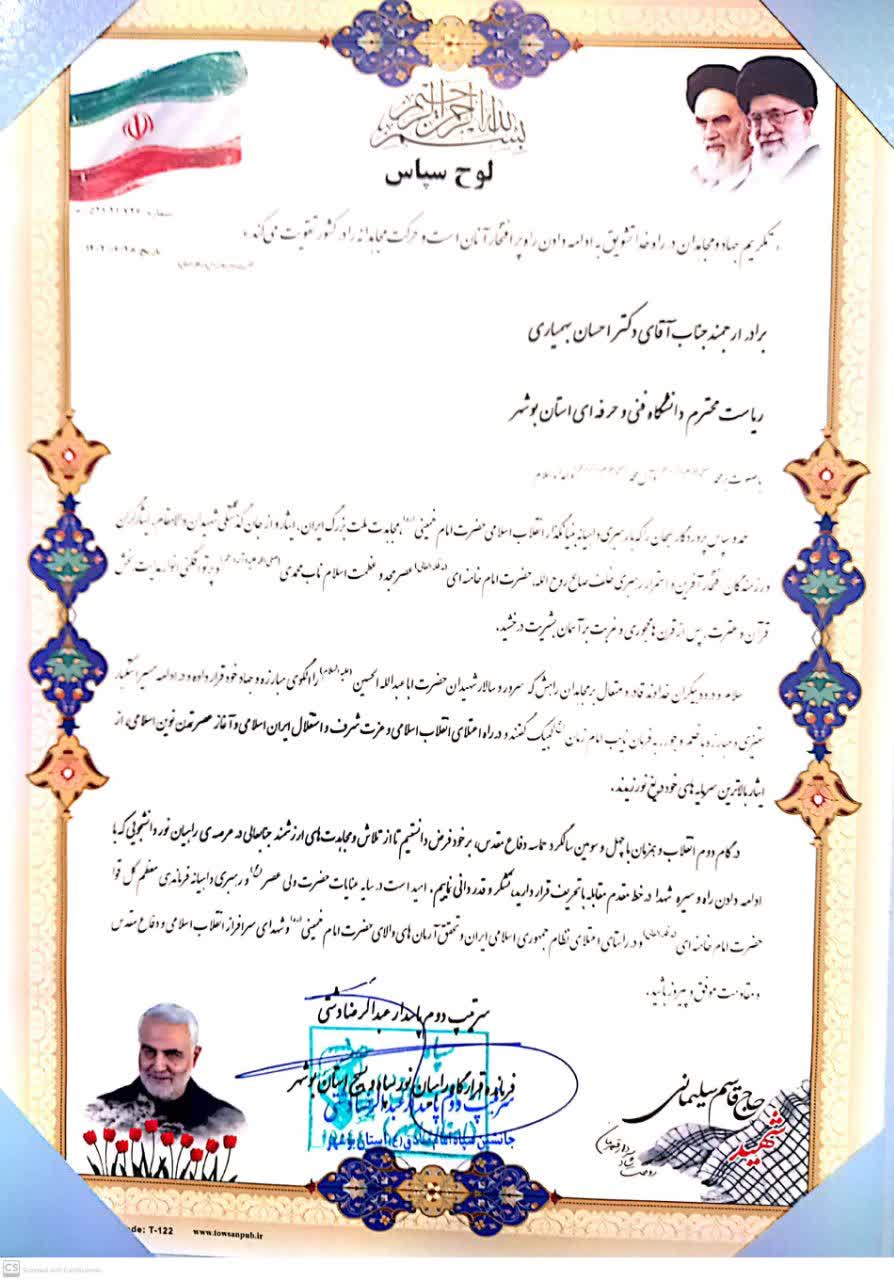 بسم الله الرحمن الرحیم
لوح سپاس
شماره:
تاریخ:
« تکریم جهاد و مجاهدان در راه خدا تشویق به ادامه دادن راه پر افتخار آنان است و حرکت مجاهدانه را در کشور تقویت می کند »
برادر ارجمند جناب آقای دکتر احسان بهمیاری
ریاست محترم دانشگاه فنی و حرفه ای استان بوشهر
با صلوات بر محمد و آل محمد
حمد و سپاس پروردگار سبحان را که با رهبری داهیانه بنیانگذار انقلاب اسلامی حضرت امام خمینی (ره)، مجاهدت ملت بزرگ ایران، ایثار و از جان گذشتگی شهیدان والامقام، ایثارگران
و رزمندگان افتخار آفرین و استمرار رهبری خلف صالح روح الله، حضرت امام خامنه ای (مدظله العالی) عصر مجد و عظمت اسلام ناب محمدی و پرتو افکنی انوار هدایت بخش
قرآن و عترت، پس از قرن ها مهجوری و غربت بر آسمان بشریت درخشید.
سلام و درود بیکران خداوند قادر و متعال بر مجاهدان راهش که سرور و سالار شهیدان حضرت اباعبدالله الحسین (علیه السلام) را الگوی مبارزه و جهاد خود قرار داده و در ادامه مسیر استکبار
ستیزی و مبارزه با ظلم و جور، به فرمان نایب امام زمان لبیک گفتند و در راه اعتلای انقلاب اسلامی و عزت شرف و استقلال ایران اسلامی و آغاز عصر تمدن نوین اسلامی، از
ایثار بالاترین سرمایه های خود دریغ نورزیدند.
در گام دوم انقلاب و همزمان با چهل و سومین سالگرد حماسه دفاع مقدس، بر خود فرض دانستیم تا از تلاش و مجاهدت های ارزشمند جنابعالی در عرصه ی راهیان نور دانشجویی که با
ادامه دادن راه و سیره شهدا در خط مقدم مقابله با تحریف قرار دارید، تشکر و قدردانی نماییم. امید است در سایه عنایات حضرت ولی عصر و رهبری داهیانه فرماندهی معظم کل قوا
حضرت امام خامنه ای (مدظله العالی) و در راستای اعتلای نظام جمهوری اسلامی ایران و تحقق آرمان های والای حضرت امام خمینی (ره) و شهدای سرافراز انقلاب اسلامی و دفاع مقدس
و مقاومت موفق و پیروز باشید.
سرتیپ دوم پاسدار عبدالرضا دشتی
فرمانده قرارگاه راهیان نور سپاه و بسیج استان بوشهر
سرتیپ دوم پاسدار عبدالرضا دشتی
جانشین سپاه امام صادق (ع) استان بوشهر
حاج قاسم سلیمانی
شهید
سردار دلها
روحت شاد
Code: T-122
www.towsanpub.ir
CS Scanned with CamScanner